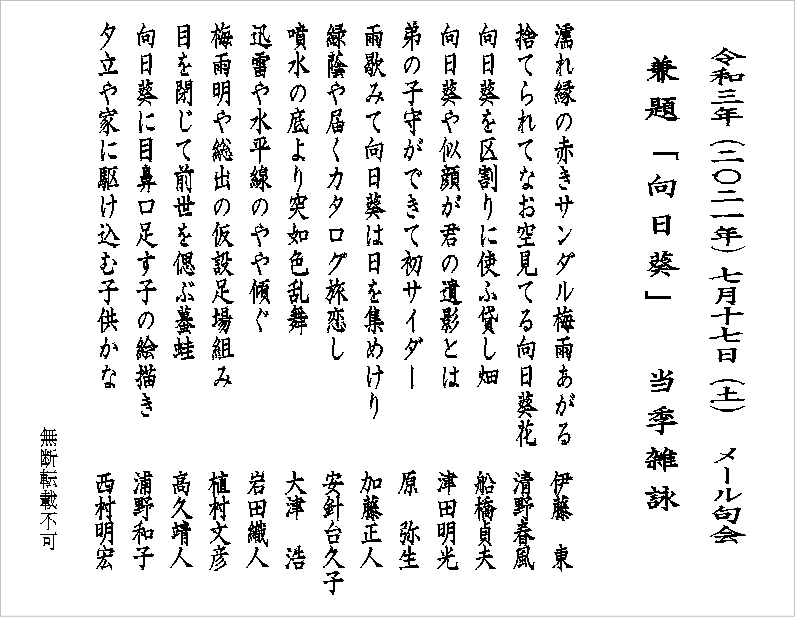 令和三年(二〇二一年)七月十七日(土) メール句会
兼題「向日葵」 当季雑詠
濡れ縁の赤きサンダル梅雨あがる 伊藤 東
捨てられてなお空見てる向日葵花 清野春風
向日葵を区割りに使ふ貸し畑 船橋貞夫
向日葵や似顔が君の遺影とは 津田明光
弟の子守ができて初サイダー 原 弥生
雨歇みて向日葵は日を集めけり 加藤正人
緑蔭や届くカタログ旅恋し 安針台久子
噴水の底より突如色乱舞 大津 浩
迅雷や水平線のやや傾ぐ 岩田織人
梅雨明や総出の仮設足場組み 植村文彦
目を閉じて前世を偲ぶ蟇蛙 高久靖人
向日葵に目鼻口足す子の絵描き 浦野和子
夕立や家に駆け込む子供かな 西村明宏
無断転載不可